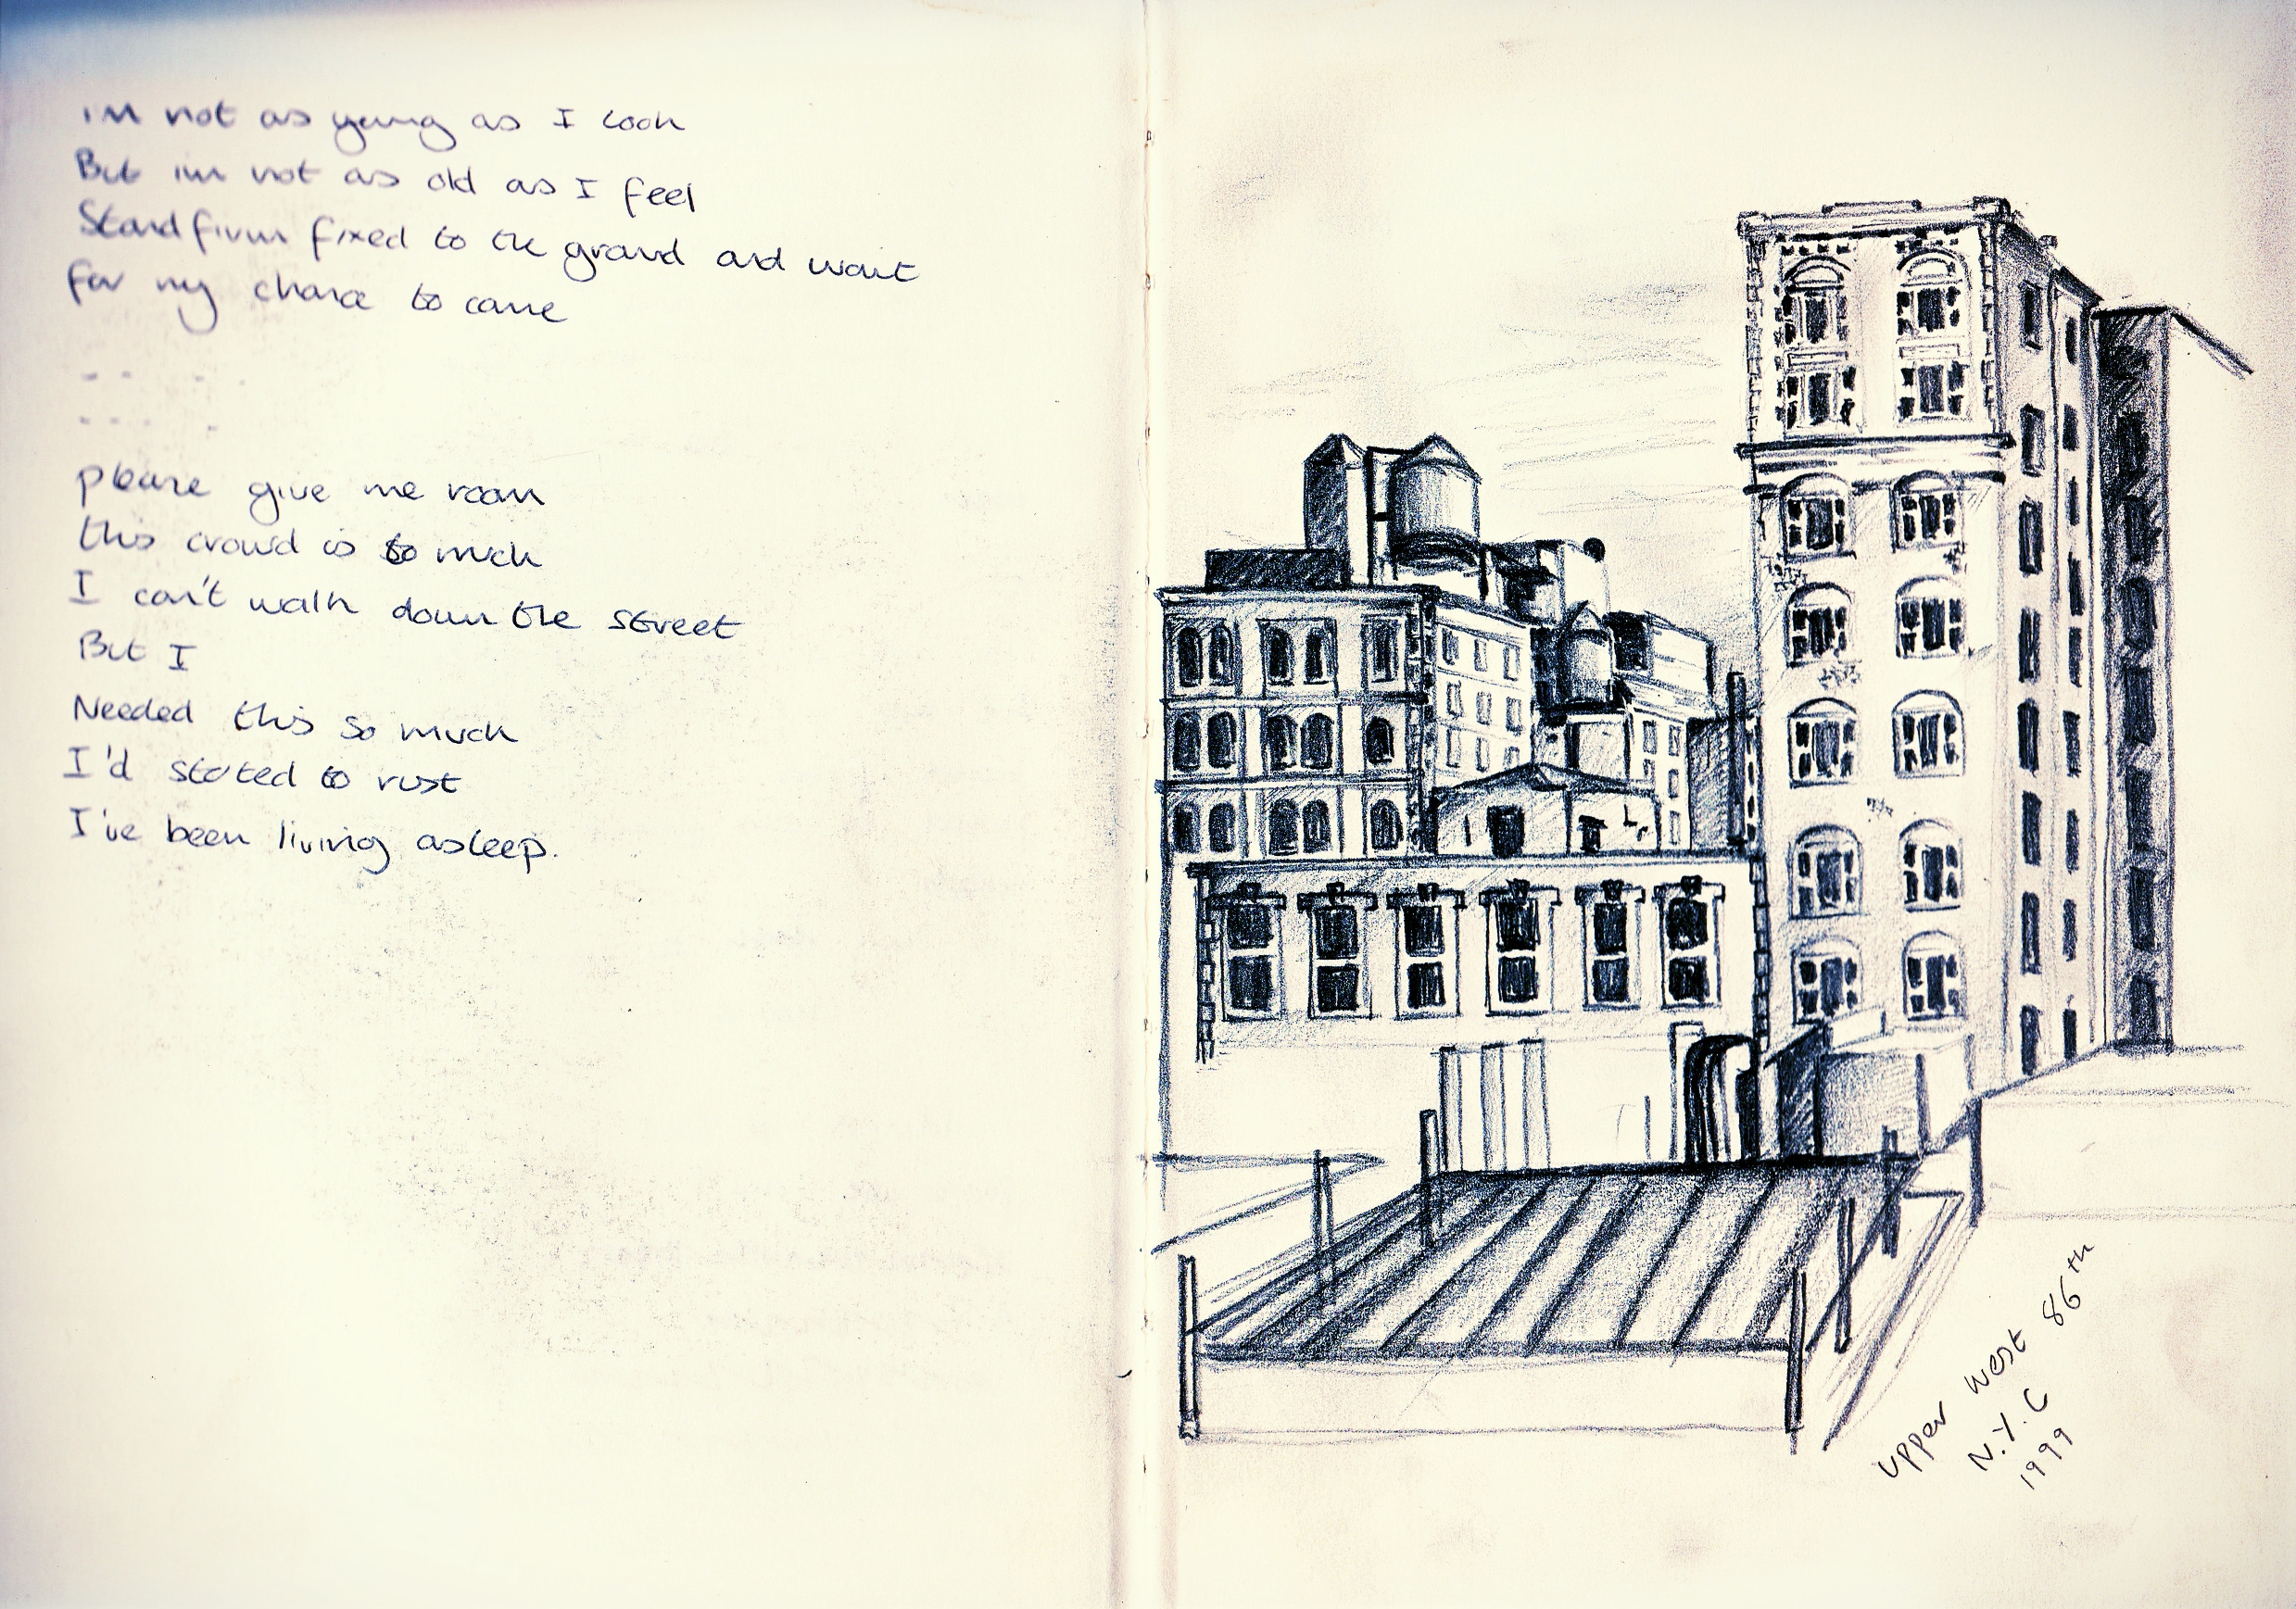 im not as young as I look
But im not as old as I feel
Stand firm fixed to the ground and wait
for my chance to come
-- -
-- -
please give me room
this crowd is to much
I can't walk down the street
But I
Needed this so much
I'd stated to rust
I've been living asleep.
upper west 86th
N.Y.C
1999